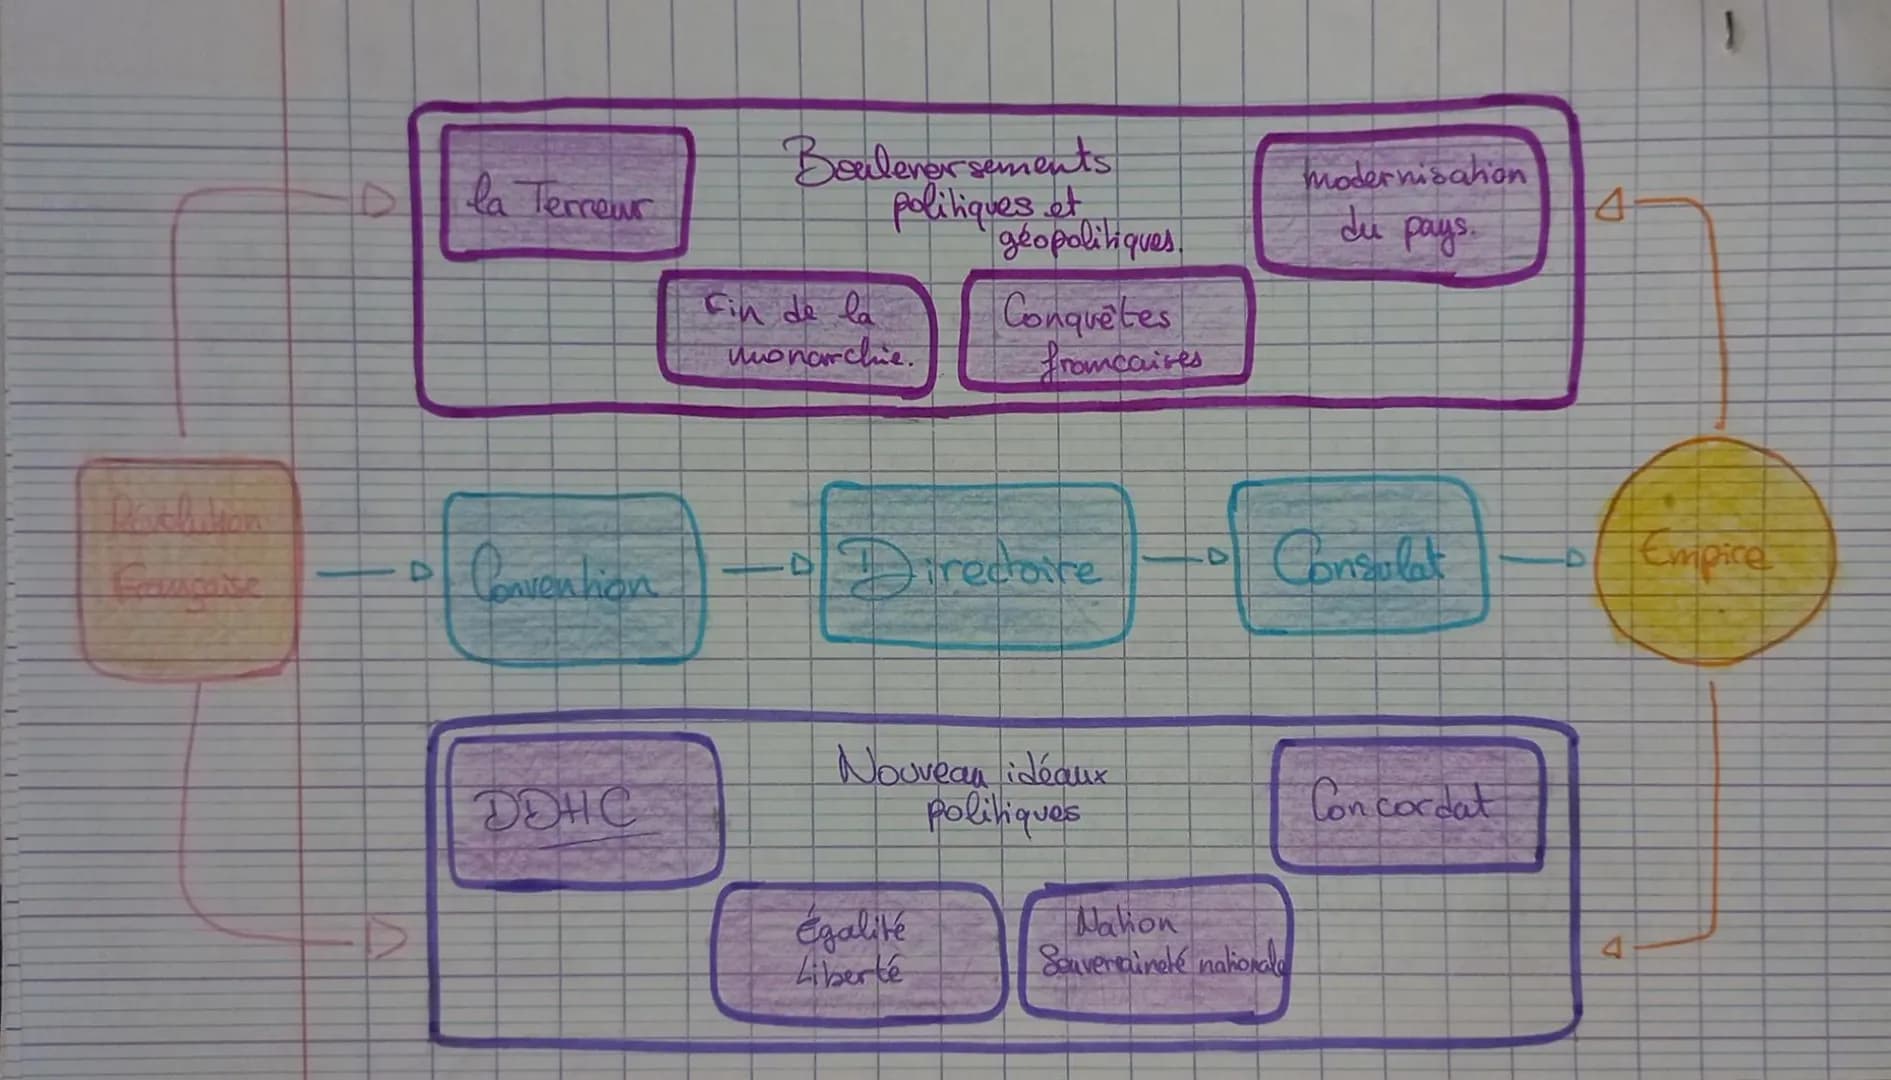 la Terreur
Bouleversements
politiques et
géopolitiques.
modernisation
du pays.
Fin de la
monarchie.
Conquêtes
françaises
Révolution
Française
Convention
Directoire
Consulat
Empire
DDHC
Nouveau idéaux
politiques
Concordat
Égalité
Liberté
Nation
Souveraineté nationale